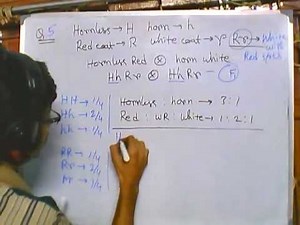 Q 5 Hornless → H horn → h
Red coat → R white coat → r Rr → White
with
Red spots
Hornless Red ⊗ horn white
Hh Rr ⊗ Hh Rr - F
HH → 1/4
Hh → 2/4
hh → 1/4
Hornless : horn → 3 : 1
Red : WR : white → 1 : 2 : 1
RR → 1/4
Rr → 2/4
rr → 1/4